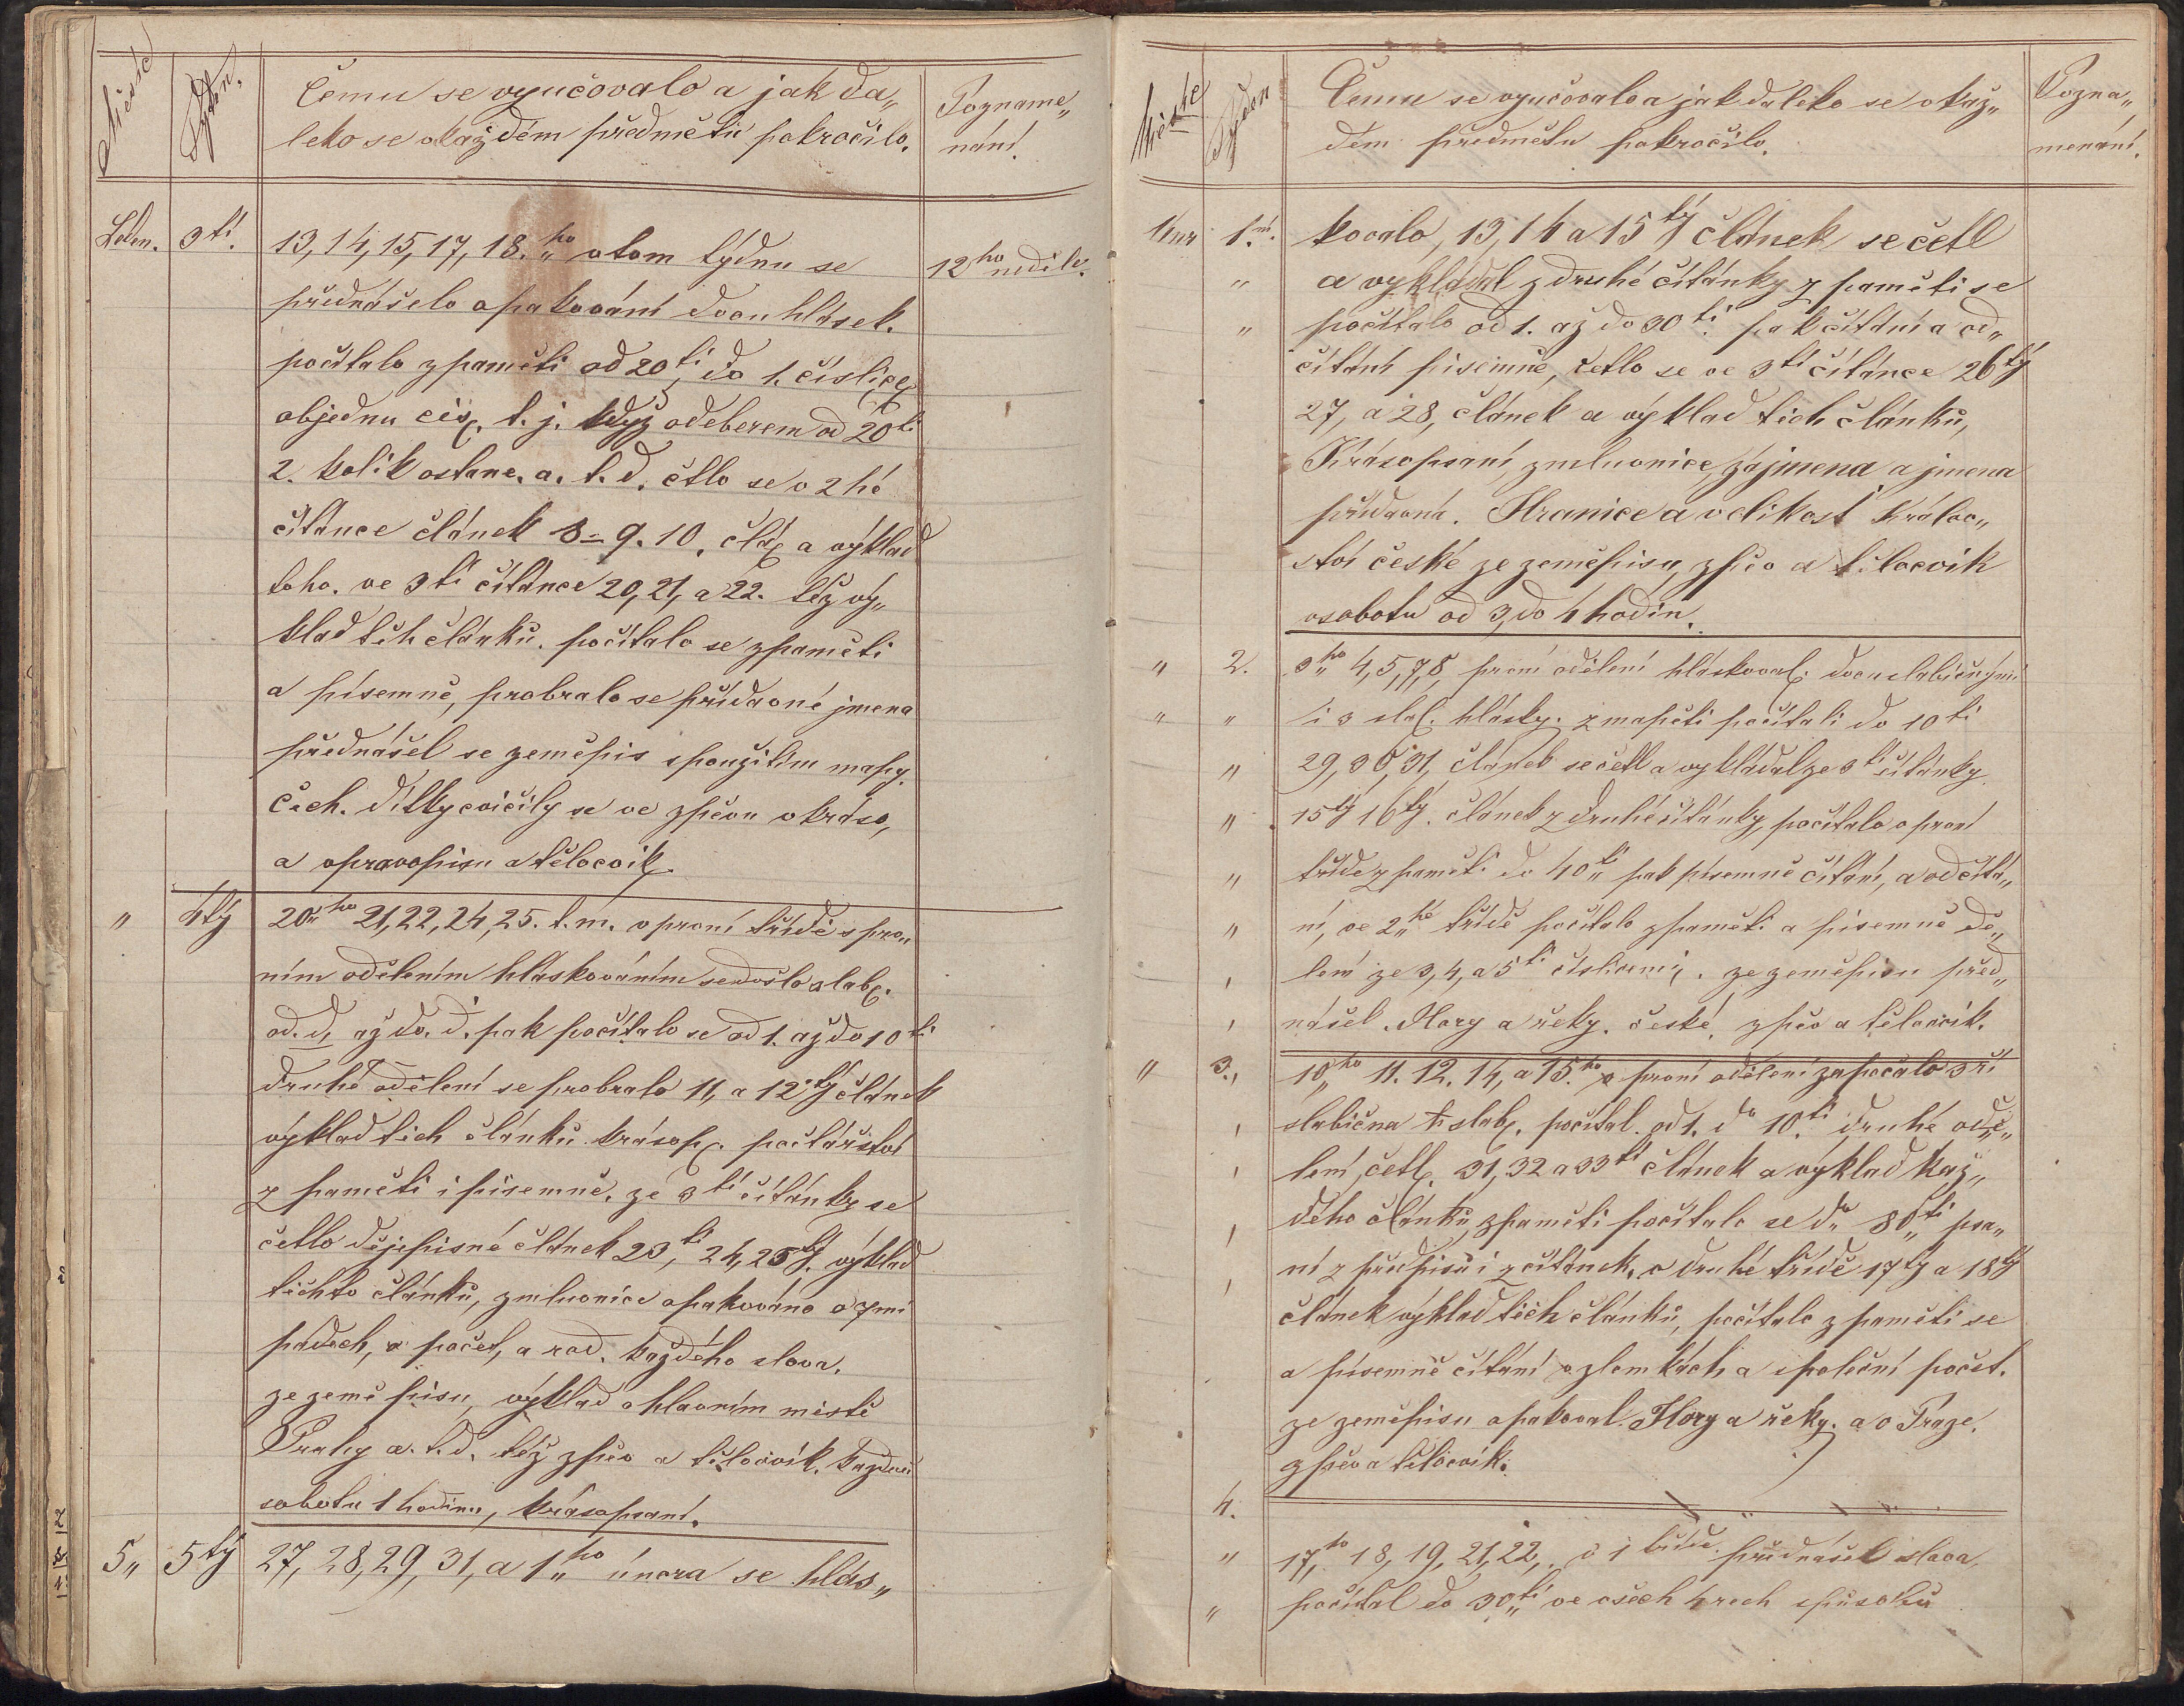 Měsíc
Týden.
Čemu se vyučovalo a jak da„
leko se o každém předmětu pokročilo.
Pozname„
nání.
Leden. 3tí. 13, 14, 15, 17, 18.ho v tom týdnu se
12ho neděle.
přednášelo opakování dvouhlásek.
počítalo z paměti od 20ti do 1. číslice
objednu čís. t. j. když odeberem od 20ti
2. kolik ostane. a. t. d. četlo se v 2hé
čítance článek 8 = 9. 10. člá. a výklad
toho. ve 3tí čítánce 20, 21, a 22. též vý„
klad těch článků. počítalo se z paměti
a písemně, probralo se přídavné jmena
přednášel se zeměpis s použitím mapy.
Čech. dítky cvičily se ve zpěvu v kráso,
a v pravopisu a tělocvik.
„ 4tý 20ho 21, 22, 24, 25. t. m. v první třídě s prv„
ním oddělením hláskováním se došlo slab.
od. d, až do. ď. pak počítalo se od 1. až do 10ti
druhé oddělení se probralo 11, a 12tý článek
výklad tich článků krásop. počtářství
z paměti i písemně. ze 3tí čítánky se
četlo dějepisné článek 23tí, 24, 25tý. výklad
těchto článků, z mluvnice opakováno o 7mi
pádech, o počet, a rod. každého slova.
ze zeměpisu, výklad o hlavním místě
Prahy a. t. d. též zpěv a tělocvik. každou
sobotu 1 hodinu, krásopsaní.
5„ 5tý 27, 28, 29, 31, a 1ho února se hlás„
Měsíc
Týden
Čemu se vyučovalo a jak daleko se o každ„
dém předmětu pokročilo.
Pozna„
menání.
Únr 1ní. kovalo, 13, 14 a 15tý článek se četl
„ a vykládal z druhé čítánky z paměti se
„ počítalo od 1. až do 30ti. pak čítání a od„
čítání písemně, četlo se ve 3tí čítánce 26tý
27, a 28, článek a výklad tich článků,
Krásopsaní, z mluvnice, zájmena a jmena
přídavná. Hranice a velikost králov„
ství české ze zeměpisu, zpěv a tělocvik
v sobotu od 3, do 4 hodin.
„ 2. 3ho 4, 5, 7, 8, první oddělení hláskoval. dvouslabičnými
„ „ i 3 slab. hlásky. z mapěti počítali do 10ti
„ 29, 30, 31, článek se četl a vykládal ze 3tí čítánky.
„ 15tý 16tý. článek z druhé čítánky, počítalo v první
„ třídě z paměti do 40ti pak písemně čítání, a odčítá„
„ ní, ve 2hé třídě počítalo z paměti a písemně dě„
, lení ze 3, 4, a 5ti číslicemi. ze zeměpisu před„
, nášel. Hory a řeky. české, zpěv a tělocvik.
„ 3., 10ho 11. 12. 14, a 15.ho v první oddělení započalo 3ří
, slabična slab. počítal. od 1. do 10.ti druhé oddě„
, lení, četl. 31, 32 a 33tí článek a výklad kaž„
, dého článku, z paměti počítalo se do 80ti psa„
, ní z předpisů i z čítánek. v druhé třídě 17tý a 18tý
článek výklad těch článků, počítalo z paměti se
a písemně čítání v zlomkách a společní počet.
ze zeměpisu opakoval. Hory a řeky. a o Praze.
zpěv a tělocvik.
4.
„ 17,ho 18, 19, 21, 22, v 1 třídě. přednášel slova,
„ počítal do 30ti ve všech 4rech spůsobů